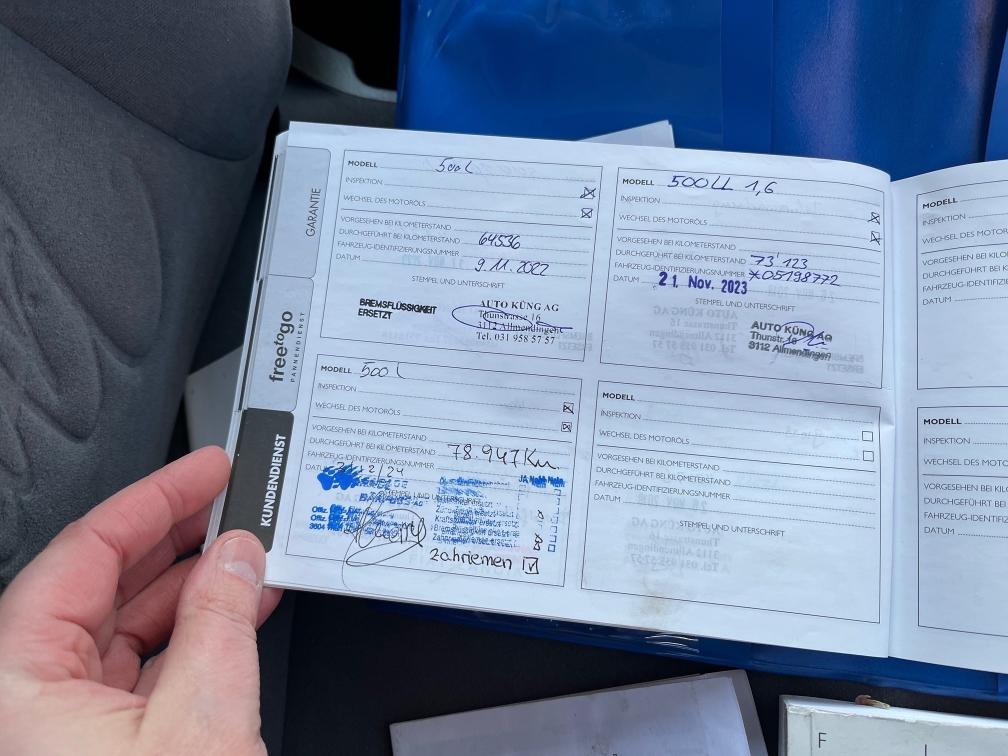 GARANTIE
freetogo
PANNENDIENST
KUNDENDIENST
MODELL 500L
INSPEKTION
WECHSEL DES MOTORÖLS
VORGESEHEN BEI KILOMETERSTAND
DURCHGEFÜHRT BEI KILOMETERSTAND 64536
FAHRZEUG-IDENTIFIZIERUNGSNUMMER
DATUM 9.11.2022
STEMPEL UND UNTERSCHRIFT
BREMSFLÜSSIGKEIT
ERSETZT
AUTO KÜNG AG
Thunstrasse 16
3112 Allmendingen
Tel. 031 958 57 57
MODELL 500LL 1,6
INSPEKTION
WECHSEL DES MOTORÖLS
VORGESEHEN BEI KILOMETERSTAND
DURCHGEFÜHRT BEI KILOMETERSTAND 73'123
FAHRZEUG-IDENTIFIZIERUNGSNUMMER *05198772
DATUM 21. Nov. 2023
STEMPEL UND UNTERSCHRIFT
AUTO KÜNG AG
Thunstr. 16
3112 Allmendingen
MODELL 500 L
INSPEKTION
WECHSEL DES MOTORÖLS
VORGESEHEN BEI KILOMETERSTAND
DURCHGEFÜHRT BEI KILOMETERSTAND 78.947Km
FAHRZEUG-IDENTIFIZIERUNGSNUMMER
DATUM 12/24
STEMPEL UND UNTERSCHRIFT
Zahriemen
MODELL
INSPEKTION
WECHSEL DES MOTORÖLS
VORGESEHEN BEI KILOMETERSTAND
DURCHGEFÜHRT BEI KILOMETERSTAND
FAHRZEUG-IDENTIFIZIERUNGSNUMMER
DATUM
STEMPEL UND UNTERSCHRIFT
MODELL
INSPEKTION
WECHSEL DES MOTORÖ
VORGESEHEN BEI KI
DURCHGEFÜHRT BEI K
FAHRZEUG-IDENTIFIZI
DATUM
MODELL
INSPEKTION
WECHSEL DES MOTOR
VORGESEHEN BEI K
DURCHGEFÜHRT BEI
FAHRZEUG-IDENTIFI
DATUM
F